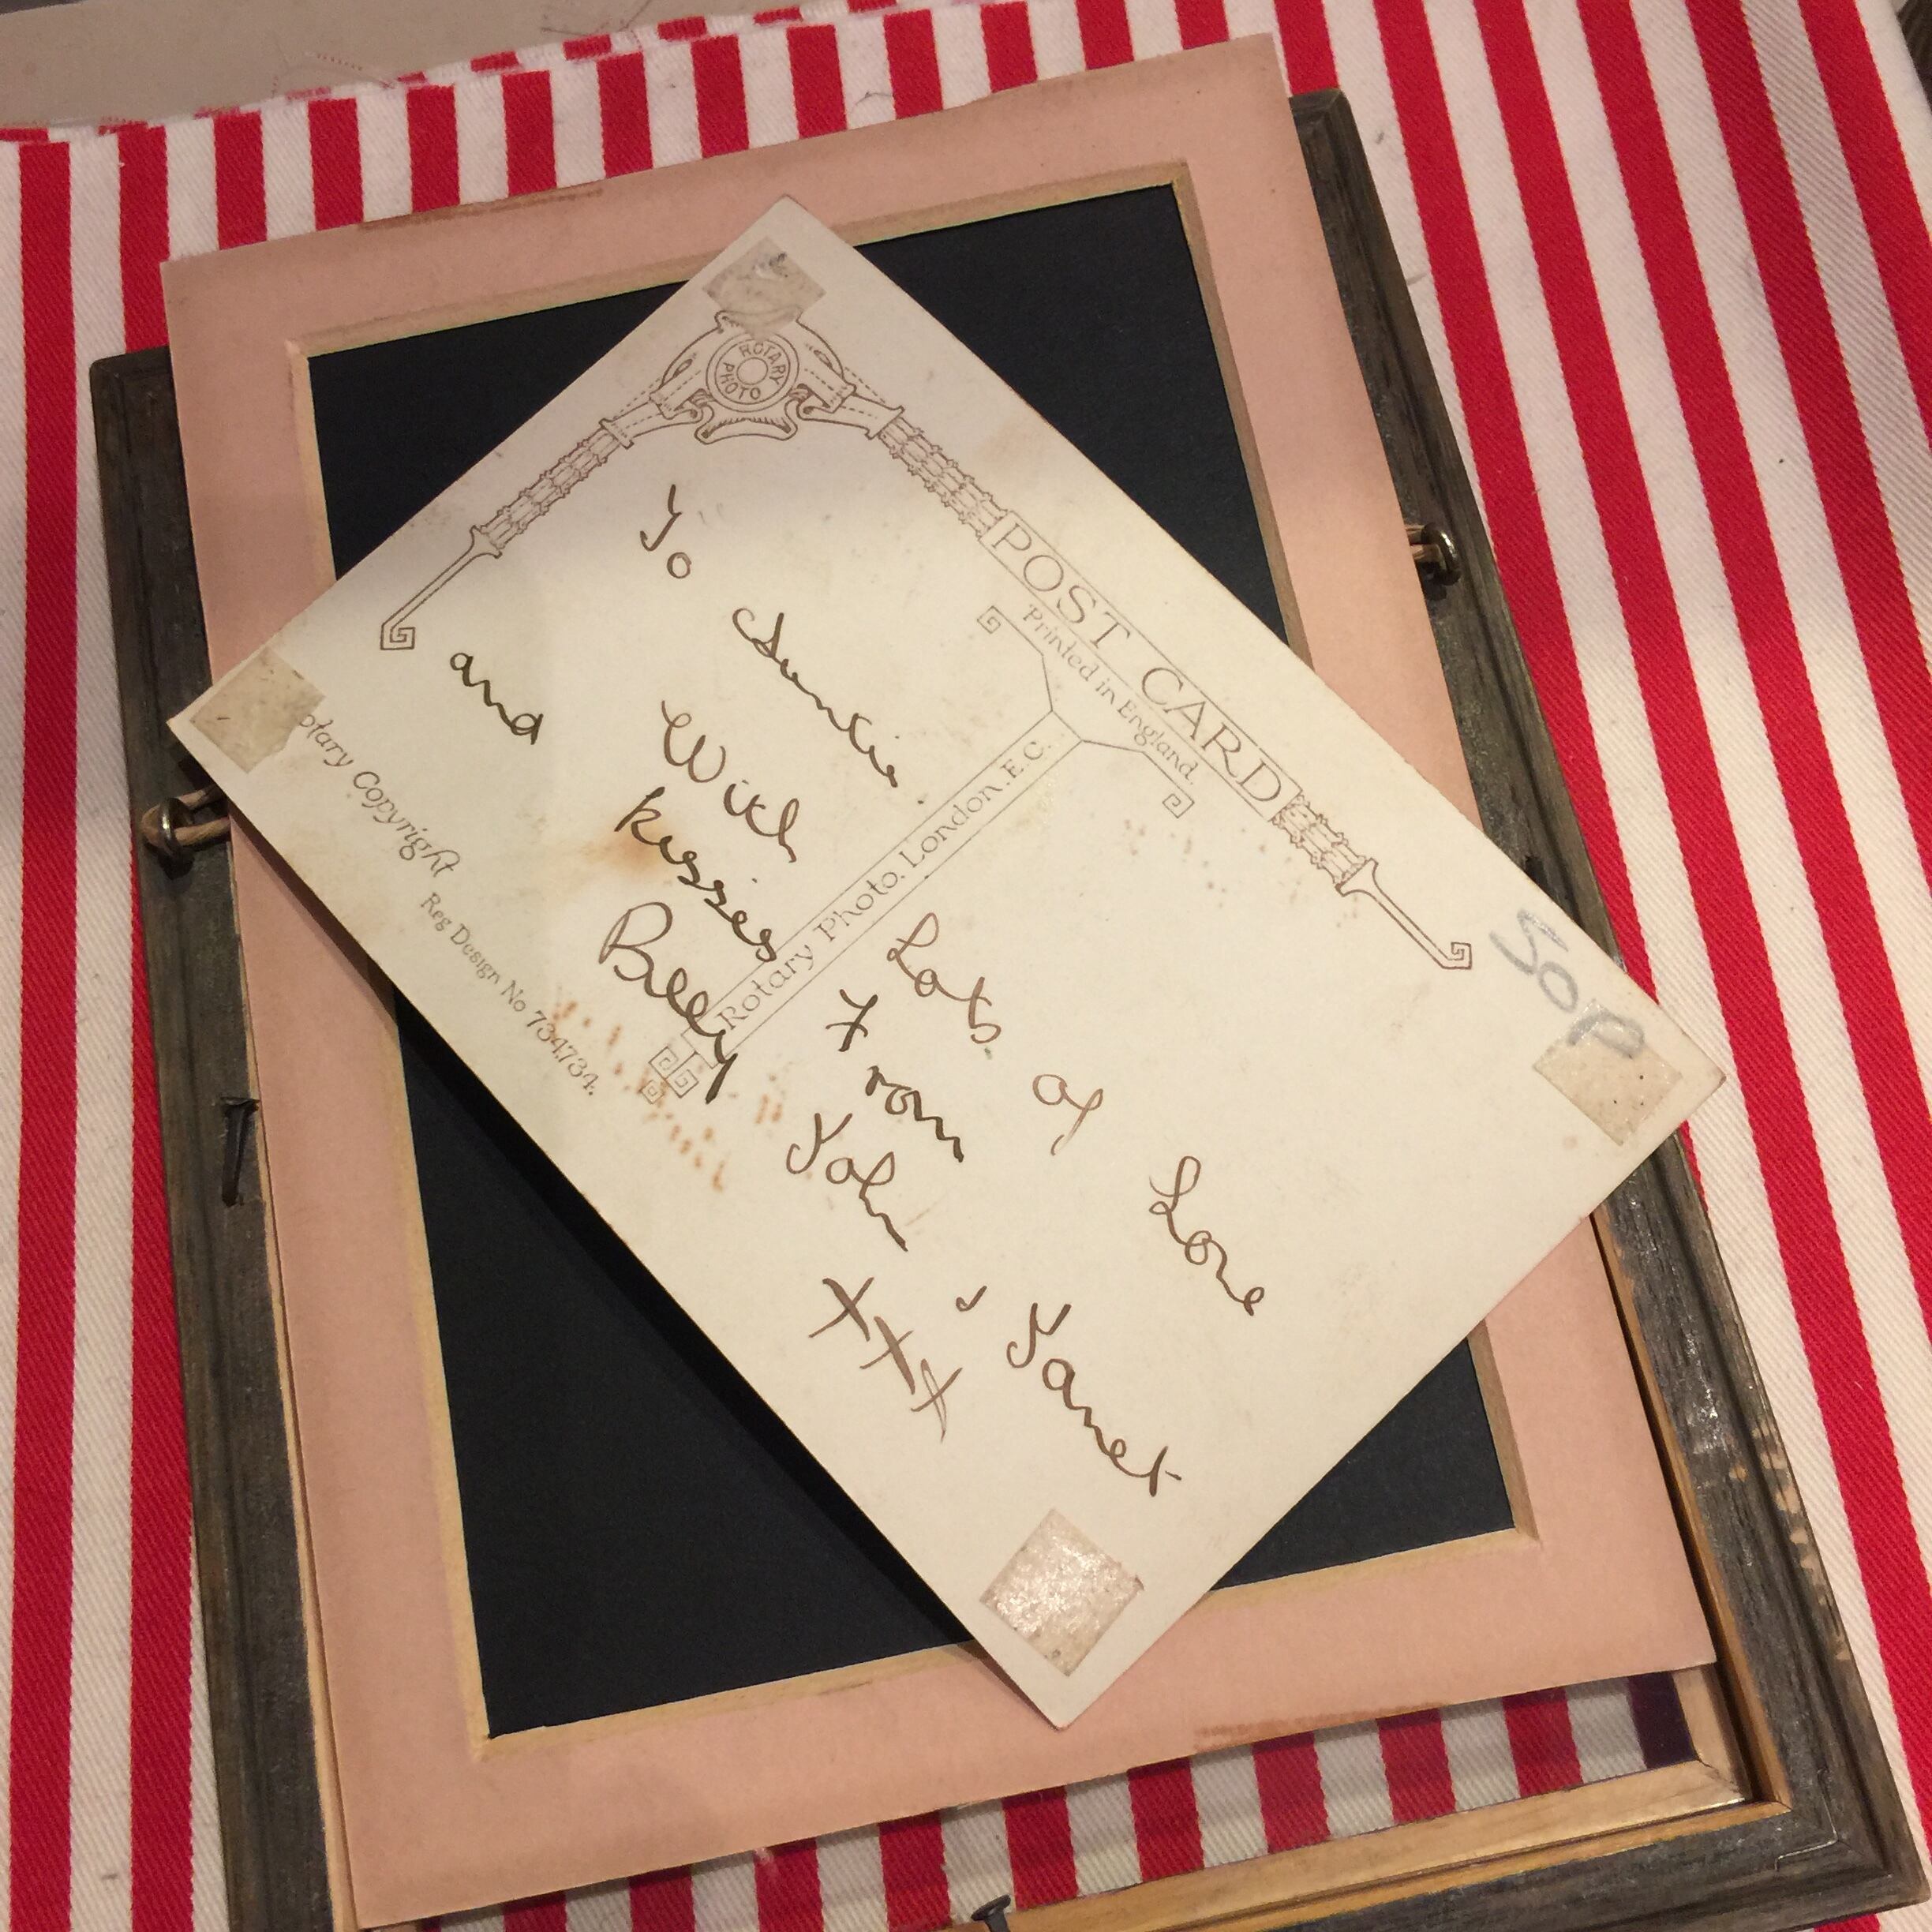 ROTARY PHOTO
POST CARD
Printed in England.
50p
To Auntie
With Lots of Love
and kisses From
Billy John & Janet
xxx
Rotary Photo. London. E.C.
otary Copyright
Reg Design No 734734.